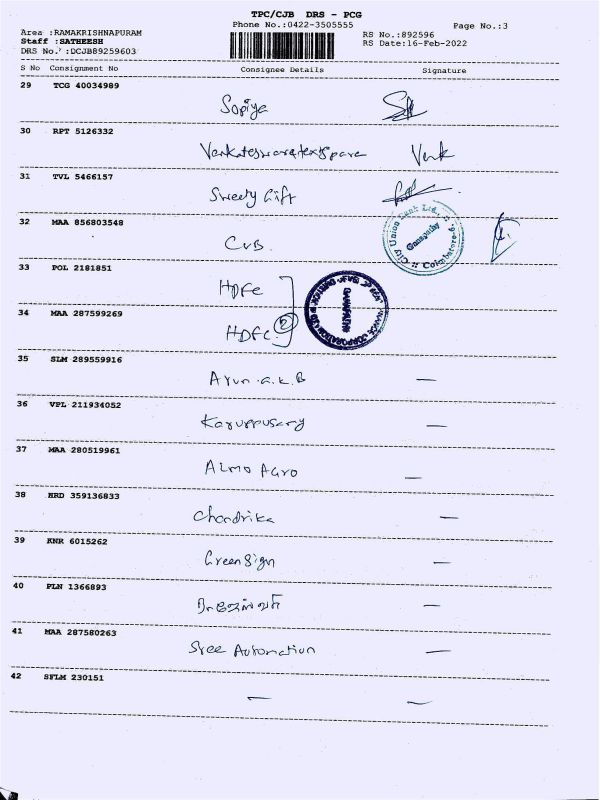 TPC/CJB DRS - PCG
Phone No.:0422-3505555
Page No.:3
Area :RAMAKRISHNAPURAM
RS No.:892596
Staff :SATHEESH
RS Date:16-Feb-2022
DRS No. :DCJB89259603
S No Consignment No Consignee Details Signature
29 TCG 40034989
Sopiya
30 RPT 5126332
Venkateswara texspare Venk
31 TVL 5466157
Sweety Gift
32 MAA 856803548
CVB.
City Union Bank Ltd., Coimbatore-6.
Ganapathy
33 POL 2181851
HDFC
34 MAA 287599269
HDFC. 2
35 SLM 289559916
Arun.a.k.B —
36 VPL 211934052
Karuppusamy —
37 MAA 280519961
ALMO AGRO —
38 HRD 359136833
Chandrika —
39 KNR 6015262
Green Sign —
40 PLN 1366893
—
41 MAA 287580263
Sree Automation —
42 SFLM 230151
— —